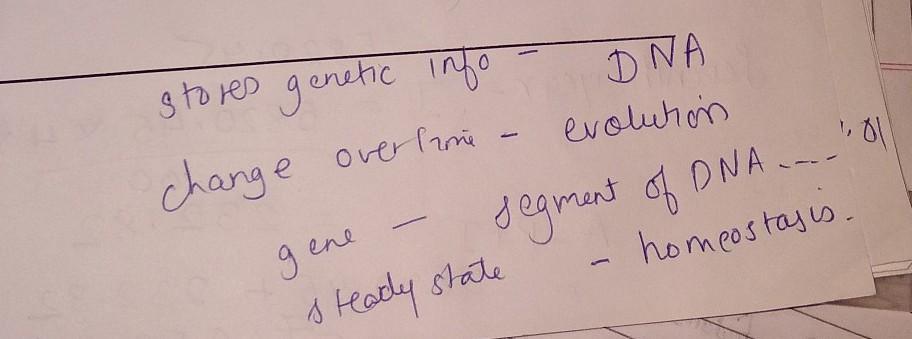 stores genetic info - DNA
change over time - evolution
gene - segment of DNA ----
steady state - homeostasis.